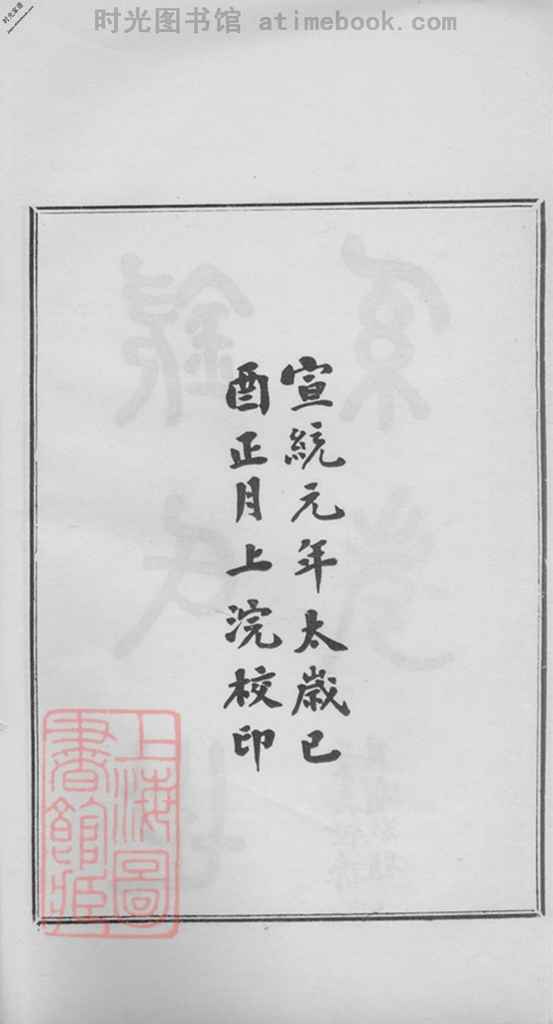 时光图书馆 atimebook.com
宣統元年太歲已
酉正月上浣校印
上海圖
書館藏